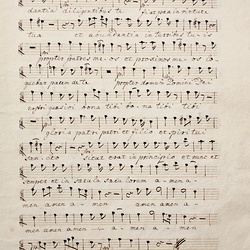 dantia diligentibus te fiat pax in virtute
tua et abundantia in turribus tuis
propter fratres meos et proximos meos lo-
quebar pacem de te propter domum Domini Dei
nostri quaesivi bona tibi bona tibi
gloria patri patri et filio et spiritui
sancto sicut erat in principio et nunc et
semper et in saecula saeculorum amen
men amen amen amen amen
men amen amen amen